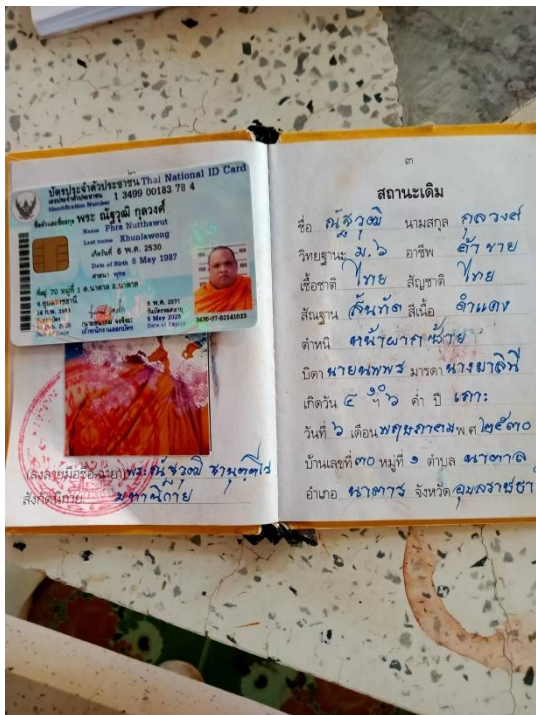 บัตรประจำตัวประชาชน Thai National ID Card
เลขประจำตัวประชาชน
Identification Number
1 3499 00183 78 4
ชื่อตัวและชื่อสกุล พระ ณัฐวุฒิ กุลวงศ์
Name Phra Nutthawut
Last name Khunlawong
เกิดวันที่ 6 พ.ค. 2530
Date of Birth 6 May 1987
ศาสนา พุทธ
ที่อยู่ 70 หมู่ที่ 1 ต.นาตาล อ.นาตาล
จ.อุบลราชธานี
14 ก.พ. 2563
5 พ.ค. 2571
วันบัตรหมดอายุ
5 May 2028
Date of Expiry
เจ้าพนักงานออกบัตร
3470-07-02141033
ลงลายมือชื่อ ฉายา พระณัฐวุฒิ
สังกัดนิกาย มหานิกาย
๓
สถานะเดิม
ชื่อ ณัฐวุฒิ นามสกุล กุลวงศ์
วิทยฐานะ ม.๖ อาชีพ ค้าขาย
เชื้อชาติ ไทย สัญชาติ ไทย
สัณฐาน สันทัด สีเนื้อ ดำแดง
ตำหนิ หน้าผากซ้าย
บิดา นายนพพร มารดา นางมาลินี
เกิดวัน ๔ ค่ำ ปี เถาะ
วันที่ ๖ เดือน พฤษภาคม พ.ศ. ๒๕๓๐
บ้านเลขที่ ๗๐ หมู่ที่ ๑ ตำบล นาตาล
อำเภอ นาตาล จังหวัด อุบลราชธา